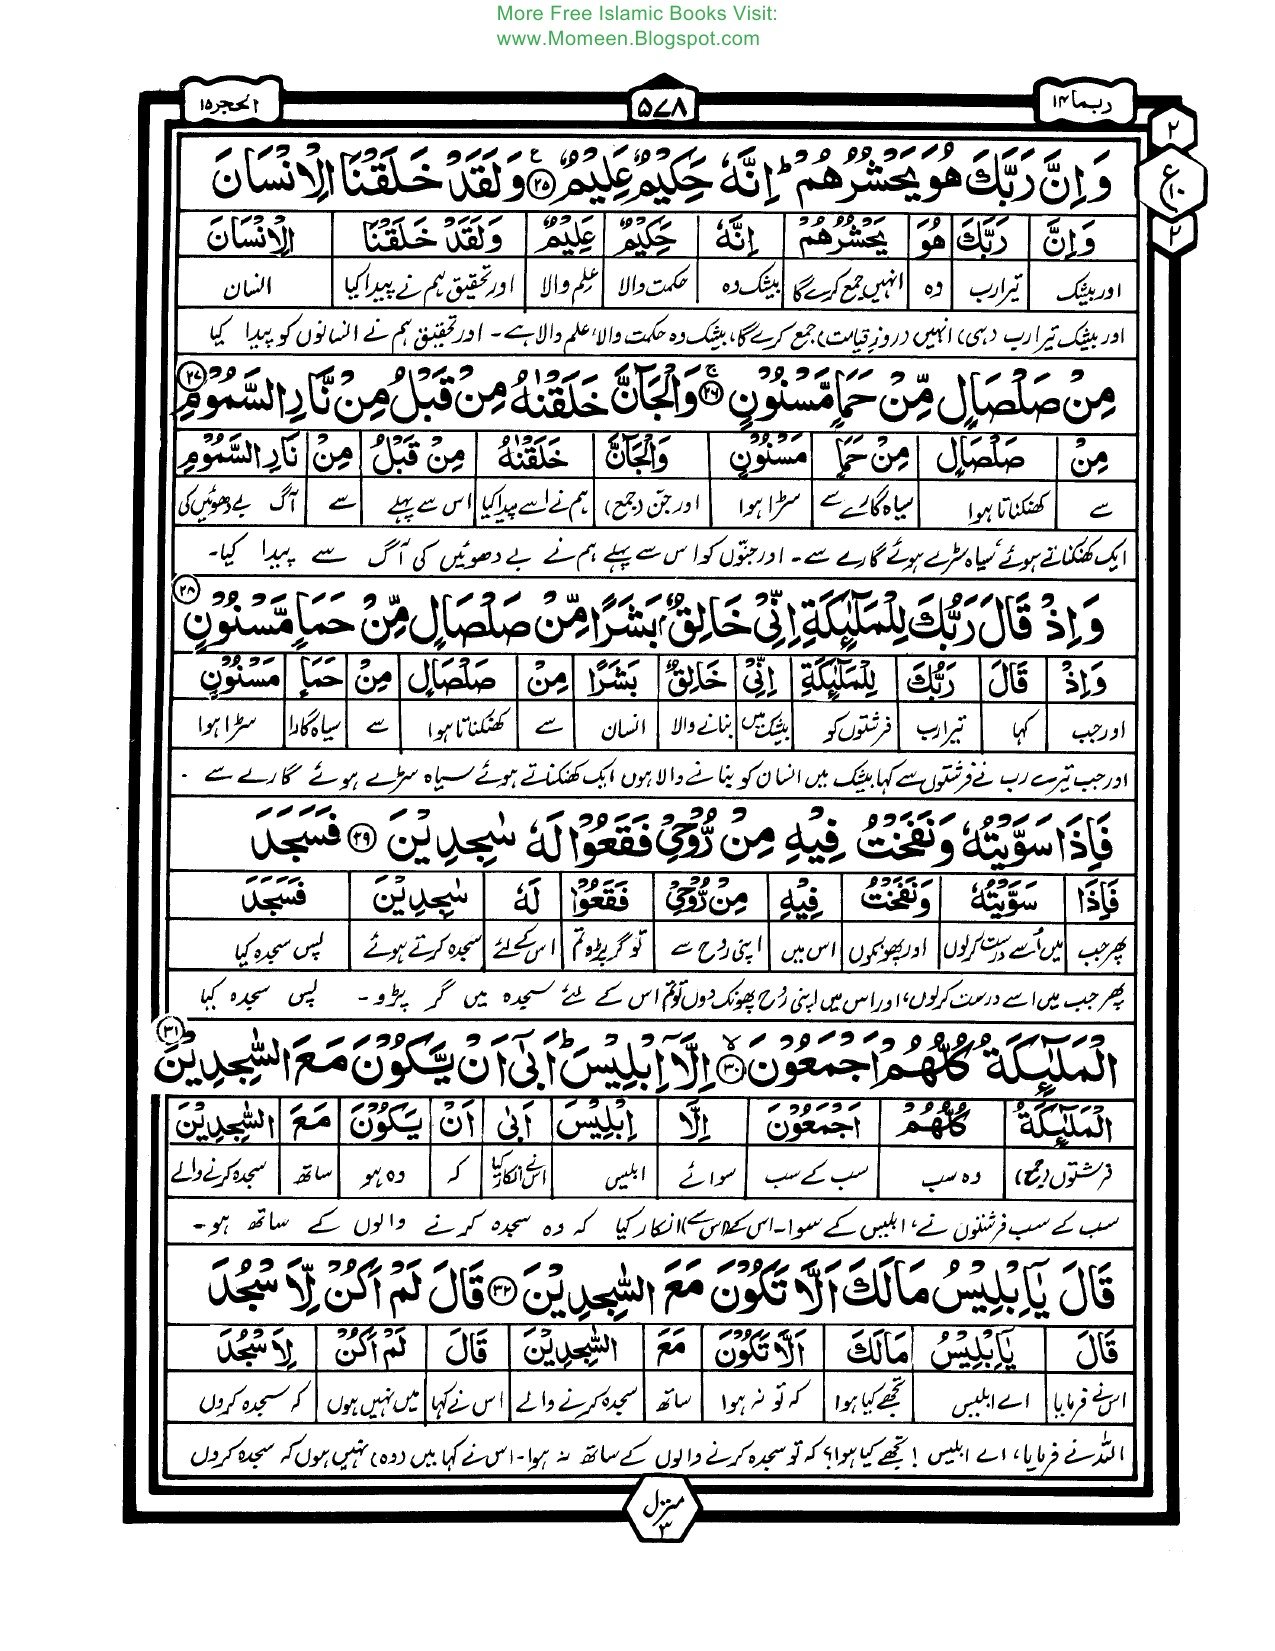 More Free Islamic Books Visit:
www.Momeen.Blogspot.com
ربما ۱۴
۵۷۸
الحجر ۱۵
۲
ع
۱۰
۲
وَاِنَّ رَبَّكَ هُوَ يَحْشُرُهُمْ ؕ اِنَّهٗ حَكِيْمٌ عَلِيْمٌ ۲۵ وَلَقَدْ خَلَقْنَا الْاِنْسَانَ
وَاِنَّ رَبَّكَ هُوَ يَحْشُرُهُمْ اِنَّهٗ حَكِيْمٌ عَلِيْمٌ وَلَقَدْ خَلَقْنَا الْاِنْسَانَ
اور بیشک تیرا رب وہ انہیں جمع کرے گا بیشک وہ حکمت والا علم والا اور تحقیق ہم نے پیدا کیا انسان
اور بیشک تیرا رب (وہی) انہیں (روزِ قیامت) جمع کرے گا، بیشک وہ حکمت والا، علم والا ہے۔ اور تحقیق ہم نے انسانوں کو پیدا کیا
مِنْ صَلْصَالٍ مِّنْ حَمَاٍ مَّسْنُوْنٍ ۚ ۲۶ وَالْجَآنَّ خَلَقْنٰهُ مِنْ قَبْلُ مِنْ نَّارِ السَّمُوْمِ ۲۷
مِنْ صَلْصَالٍ مِّنْ حَمَاٍ مَسْنُوْنٍ وَالْجَآنَّ خَلَقْنٰهُ مِنْ قَبْلُ مِنْ نَارِ السَّمُوْمِ
سے کھنکناتا ہوا سیاہ گارے سے سڑا ہوا اور جن (جمع) ہم نے اسے پیدا کیا اس سے پہلے سے آگ بے دھوئیں کی
ایک کھنکناتے ہوئے، سیاہ سڑے ہوئے گارے سے۔ اور جنّوں کو اس سے پہلے ہم نے بے دھوئیں کی آگ سے پیدا کیا۔
وَاِذْ قَالَ رَبُّكَ لِلْمَلٰٓئِكَةِ اِنِّيْ خَالِقٌۢ بَشَرًا مِّنْ صَلْصَالٍ مِّنْ حَمَاٍ مَّسْنُوْنٍ ۲۸
وَاِذْ قَالَ رَبُّكَ لِلْمَلٰٓئِكَةِ اِنِّيْ خَالِقٌۢ بَشَرًا مِنْ صَلْصَالٍ مِنْ حَمَاٍ مَسْنُوْنٍ
اور جب کہا تیرا رب فرشتوں کو بیشک میں بنانے والا انسان سے کھنکناتا ہوا سے سیاہ گارا سڑا ہوا
اور جب تیرے رب نے فرشتوں سے کہا بیشک میں انسان کو بنانے والا ہوں ایک کھنکناتے ہوئے سیاہ سڑے ہوئے گارے سے ۔
فَاِذَا سَوَّيْتُهٗ وَنَفَخْتُ فِيْهِ مِنْ رُّوْحِيْ فَقَعُوْا لَهٗ سٰجِدِيْنَ ۲۹ فَسَجَدَ
فَاِذَا سَوَّيْتُهٗ وَنَفَخْتُ فِيْهِ مِنْ رُّوْحِيْ فَقَعُوْا لَهٗ سٰجِدِيْنَ فَسَجَدَ
پھر جب میں اُسے درست کرلوں اور پھونکوں اس میں اپنی روح سے تو گر پڑو تم اس کے لئے سجدہ کرتے ہوئے پس سجدہ کیا
پھر جب میں اسے درست کرلوں، اور اس میں اپنی رُوح پھونک دوں تو تم اس کے لئے سجدہ میں گر پڑو۔ پس سجدہ کیا
الْمَلٰٓئِكَةُ كُلُّهُمْ اَجْمَعُوْنَ ۙ ۳۰ اِلَّآ اِبْلِيْسَ ؕ اَبٰٓى اَنْ يَّكُوْنَ مَعَ السّٰجِدِيْنَ ۳۱
الْمَلٰٓئِكَةُ كُلُّهُمْ اَجْمَعُوْنَ اِلَّآ اِبْلِيْسَ اَبٰٓى اَنْ يَكُوْنَ مَعَ السّٰجِدِيْنَ
فرشتوں (جمع) وہ سب سب کے سب سوائے ابلیس اس نے انکار کیا کہ وہ ہو ساتھ سجدہ کرنے والے
سب کے سب فرشتوں نے، ابلیس کے سوا۔ اس کے (اس سے) انکار کیا کہ وہ سجدہ کرنے والوں کے ساتھ ہو۔
قَالَ يٰٓاِبْلِيْسُ مَا لَكَ اَلَّا تَكُوْنَ مَعَ السّٰجِدِيْنَ ۳۲ قَالَ لَمْ اَكُنْ لِّاَسْجُدَ
قَالَ يٰٓاِبْلِيْسُ مَا لَكَ اَلَّا تَكُوْنَ مَعَ السّٰجِدِيْنَ قَالَ لَمْ اَكُنْ لِاَسْجُدَ
اس نے فرمایا اے ابلیس تجھے کیا ہوا کہ تو نہ ہوا ساتھ سجدہ کرنے والے اس نے کہا میں نہیں ہوں کہ سجدہ کروں
اللہ نے فرمایا، اے ابلیس! تجھے کیا ہوا؟ کہ تو سجدہ کرنے والوں کے ساتھ نہ ہوا۔ اس نے کہا میں (وہ) نہیں ہوں کہ سجدہ کروں
منزل
۳